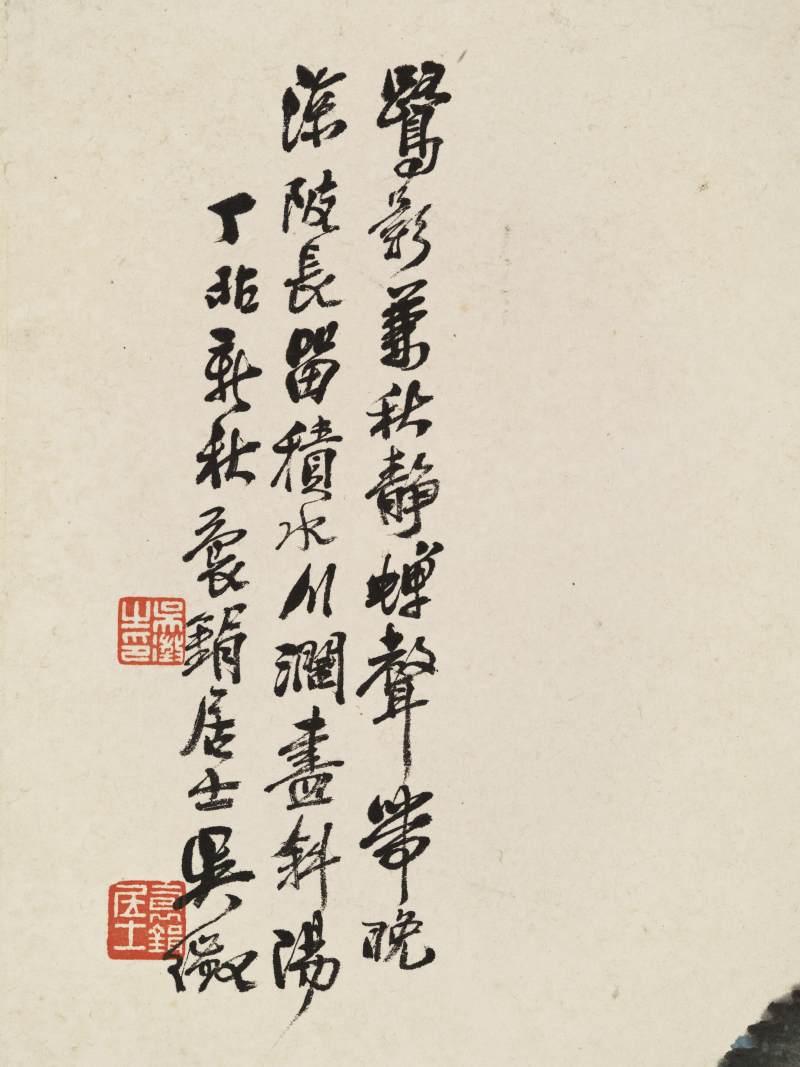 鷺影兼秋靜蟬聲帶晚
涼陂長畱積水川濶盡斜陽
丁卯新秋袌鋗居士吳徵
吳徵之印
袌鋗居士